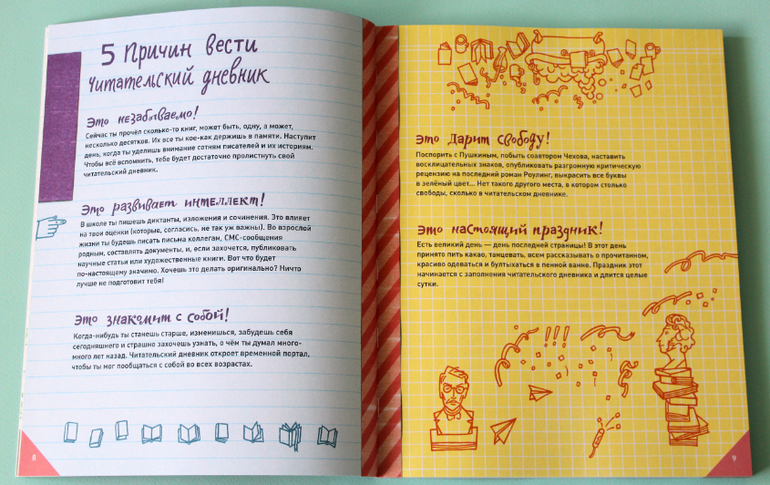 5 Причин вести
читательский дневник
Это незабываемо!
Сейчас ты прочёл сколько-то книг, может быть, одну, а может,
несколько десятков. Их все ты кое-как держишь в памяти. Наступит
день, когда ты уделишь внимание сотням писателей и их историям.
Чтобы всё вспомнить, тебе будет достаточно пролистнуть свой
читательский дневник.
Это развивает интеллект!
В школе ты пишешь диктанты, изложения и сочинения. Это влияет
на твои оценки (которые, согласись, не так уж важны). Во взрослой
жизни ты будешь писать письма коллегам, СМС-сообщения
родным, составлять документы, и, если захочется, публиковать
научные статьи или художественные книги. Вот что будет
по-настоящему значимо. Хочешь это делать оригинально? Ничто
лучше не подготовит тебя!
Это знакомит с собой!
Когда-нибудь ты станешь старше, изменишься, забудешь себя
сегодняшнего и страшно захочешь узнать, о чём ты думал много-
много лет назад. Читательский дневник откроет временной портал,
чтобы ты мог пообщаться с собой во всех возрастах.
8
Это дарит свободу!
Поспорить с Пушкиным, побыть соавтором Чехова, наставить
восклицательных знаков, опубликовать разгромную критическую
рецензию на последний роман Роулинг, выкрасить все буквы
в зелёный цвет... Нет такого другого места, в котором столько
свободы, сколько в читательском дневнике.
Это настоящий праздник!
Есть великий день — день последней страницы! В этот день
принято пить какао, танцевать, всем рассказать о прочитанном,
красиво одеваться и бултыхаться в пенной ванне. Праздник этот
начинается с заполнения читательского дневника и длится целые
сутки.
!!!
9